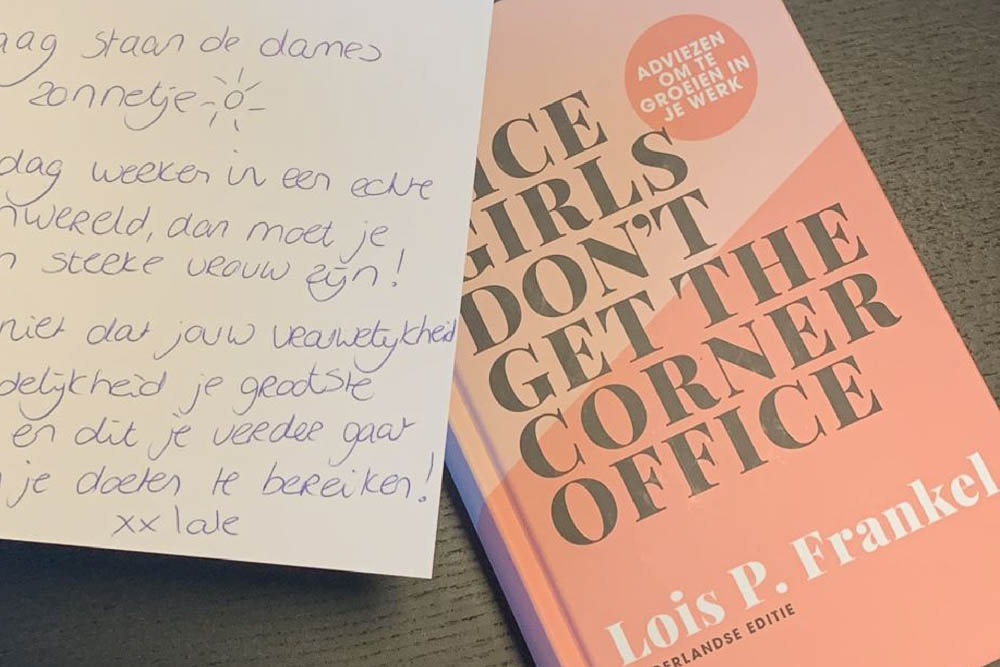 aag staan de dames
zonnetje
dag weeken in een echte
nwereld, dan moet je
n steeke vrouw zijn!
niet dat jouw vrouwelijkheid
delijkheid je grootste
en dit je verder gaat
je doelen te bereiken!
xx lale
ADVIEZEN
OM TE
GROEIEN IN
JE WERK
ICE
GIRLS
DON'T
GET THE
CORNER
OFFICE
Lois P. Frankel
DERLANDSE EDITIE